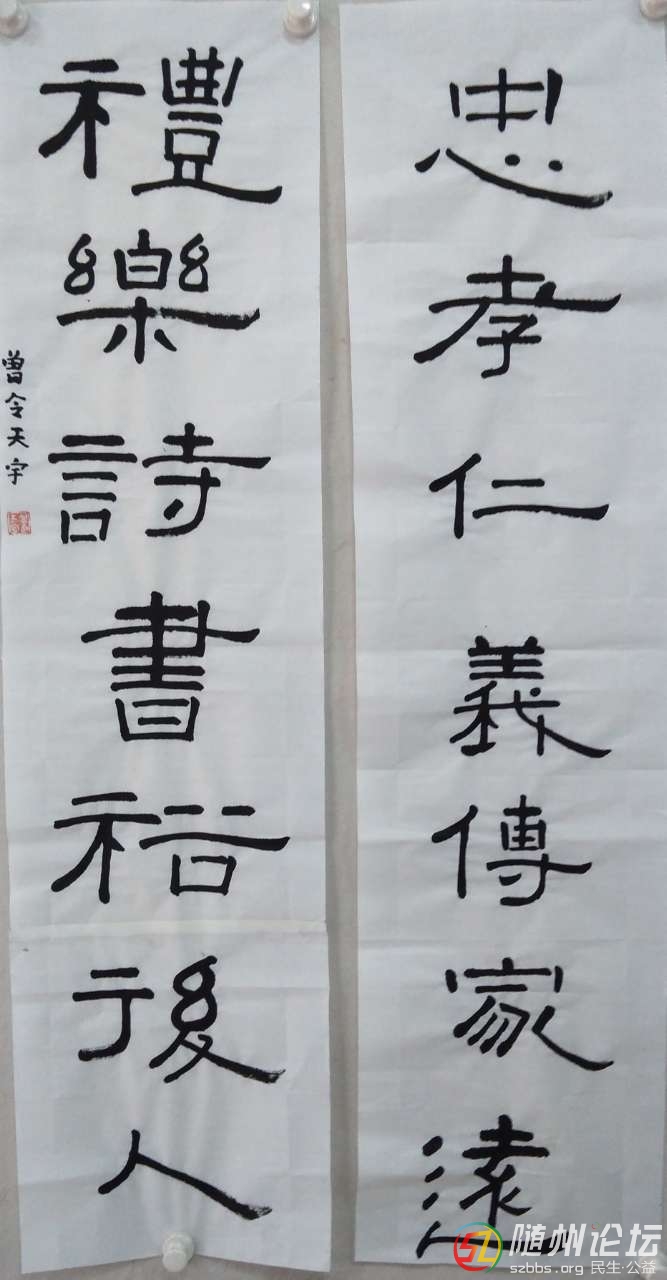 忠孝仁義傳家遠
禮樂詩書裕後人
曾令天宇
随州论坛
szbbs.org 民生·公益